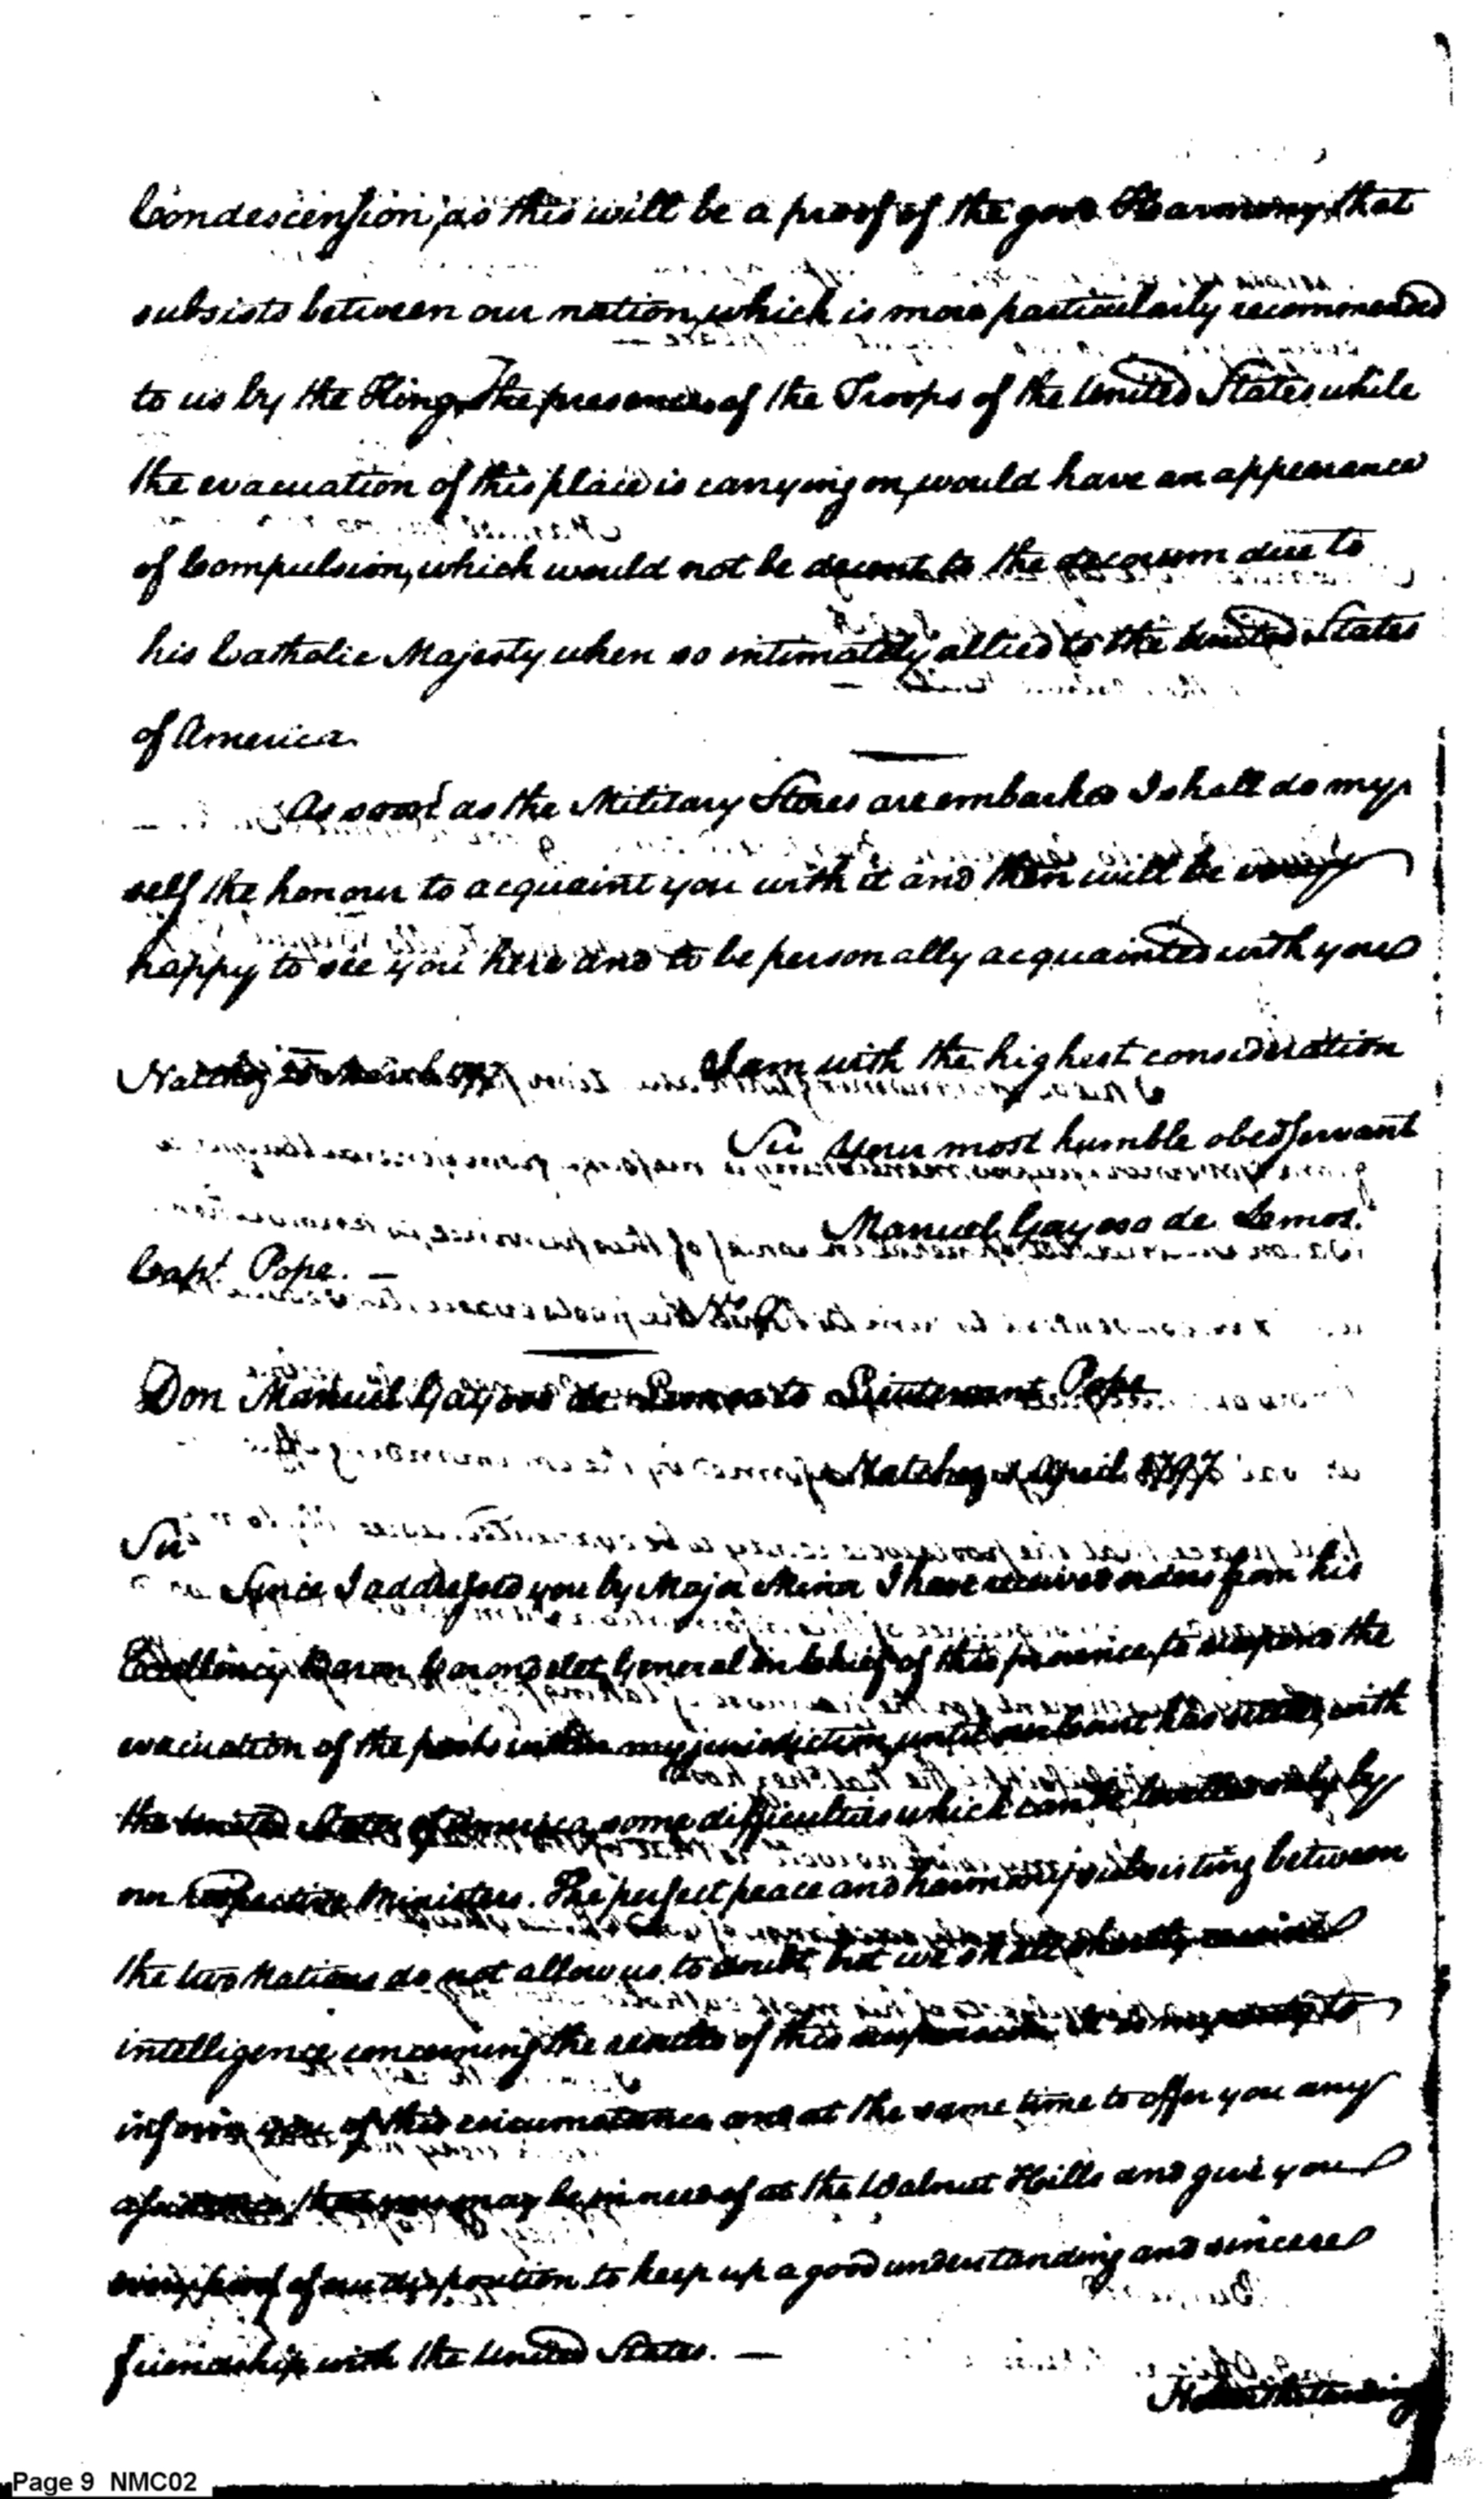 Condescension, as this will be a proof of the good Harmony that
subsists between our nation, which is more particularly recommended
to us by the King, the presence of the Troops of the United States, while
the evacuation of this place is carrying on, would have an appearance
of Compulsion, which would not be decent to the decorum due to
his Catholic Majesty when so intimately allied to the United States
of America.
As soon as the Military Stores are embarked I shall do my
self the honour to acquaint you with it and then will be very
happy to see you here and to be personally acquainted with you
Natchez March 1797 I am with the highest consideration
Sir your most humble obed servant
Manuel Gayoso de Lemos.
Capt. Pope. —
Don Manuel Gayoso de Lemos to Lieutenant Pope
Natchez April 1797
Sir
Since I addressed you by Major Minor I have received orders from his
Excellency Baron Carondelet General in Chief of this province, to suspend the
evacuation of the posts within my jurisdiction, until our Court has settled, with
the United States of America, some difficulties which can be levelled only by
our respective Ministers. The perfect peace and harmony subsisting between
the two Nations do not allow us to doubt, but we shall shortly receive
intelligence concerning the results of this suspension, it is my duty to
inform you of this circumstance and at the same time to offer you any
assistance that you may be in need of at the Walnut Hills and give you
every proof of our disposition to keep up a good understanding and sincere
friendship with the United States. —
Notwithstanding
Page 9 NMC02